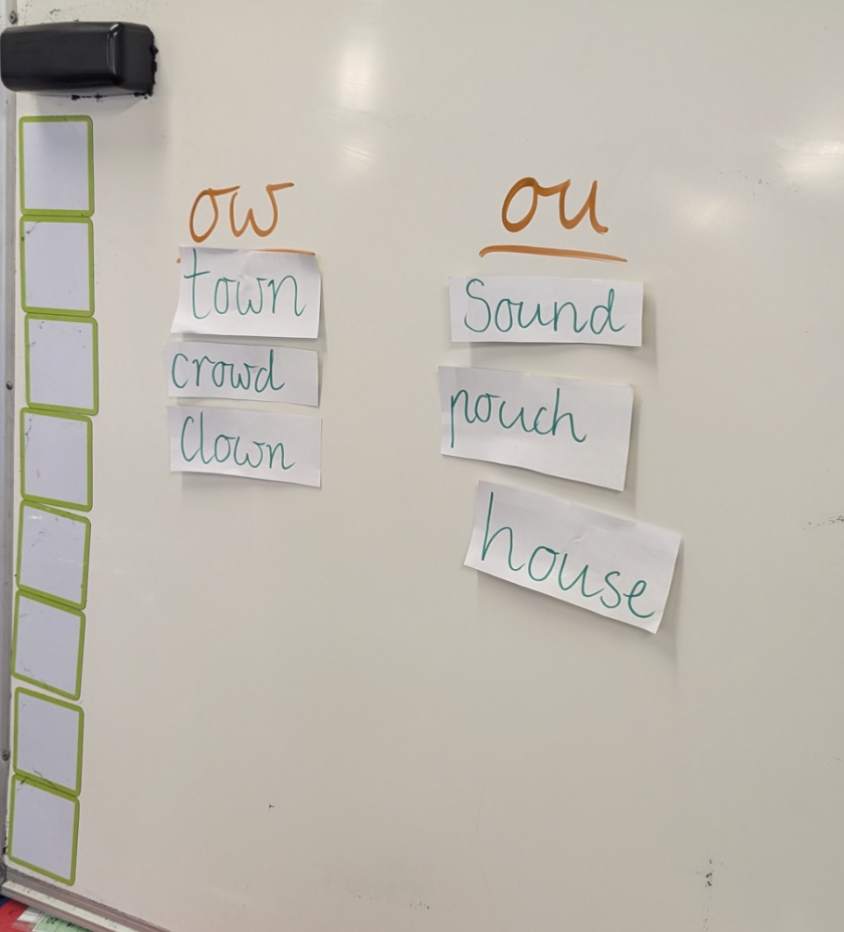 ow
town
crowd
clown
ou
Sound
pouch
house